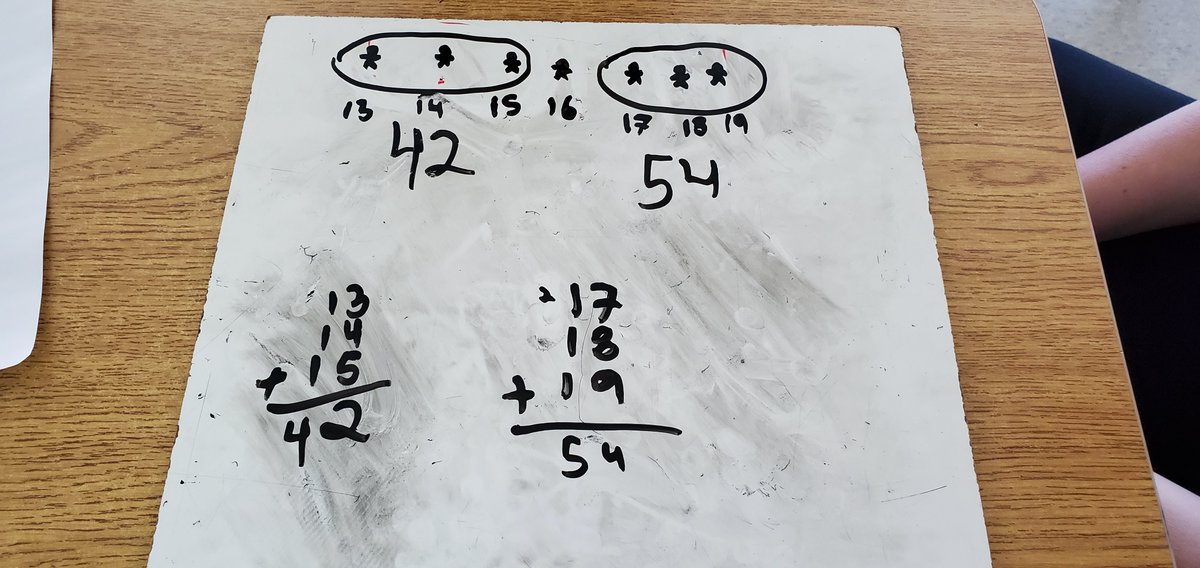 13 14 15 16 17 18 19
42 54
13
14
+ 15
42
2 17
18
+ 19
54